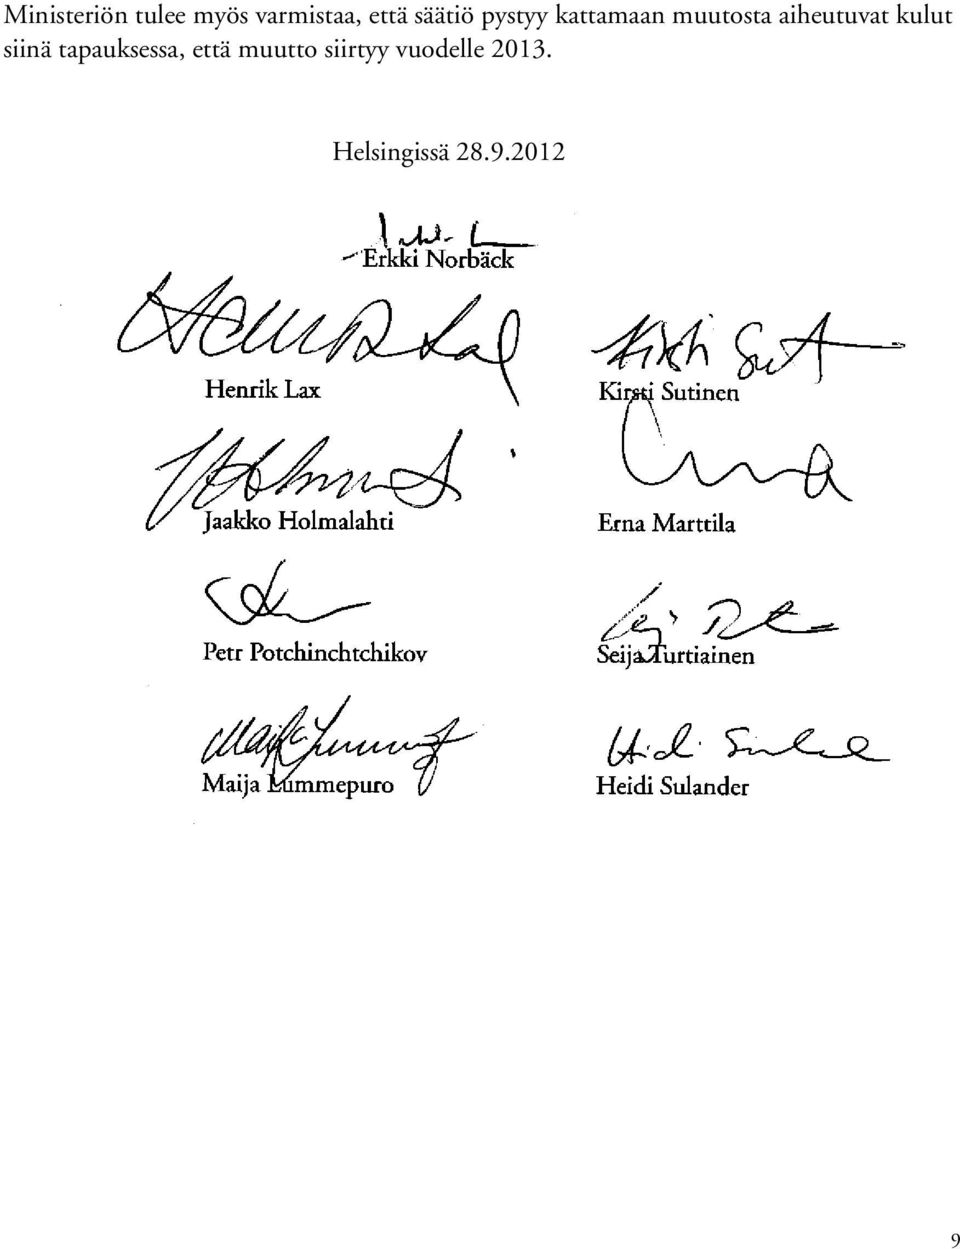 Ministeriön tulee myös varmistaa, että säätiö pystyy kattamaan muutosta aiheutuvat kulut
siinä tapauksessa, että muutto siirtyy vuodelle 2013.
Helsingissä 28.9.2012
Erkki Norbäck
Henrik Lax
Henrik Lax
Kirsti Sutinen
Jaakko Holmalahti
Erna Marttila
Petr Potchinchtchikov
Seija Turtiainen
Maija Lummepuro
Maija Lummepuro
Heidi Sulander
9